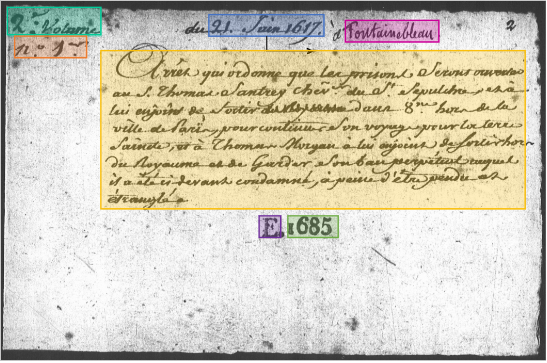 2.e Volume du 21. Juin 1617. à Fontainebleau 2
n.o 1.er
Arrest qui ordonne que les prisons seront ouvertes
au S. Thomas Santrey cher. du St. Sepulchre, et à
lui enjoins de sortir dans 8.ne hors de la
ville de Paris, pour continuer son voyage pour la terre
Sainte, et à Thomas Morgan a lui enjoint de sortir hors
du Royaume et de Garder son ban perpétuel auquel
il a été ci devant condamné, à peine d'être pendu et
étranglé
E. 1685